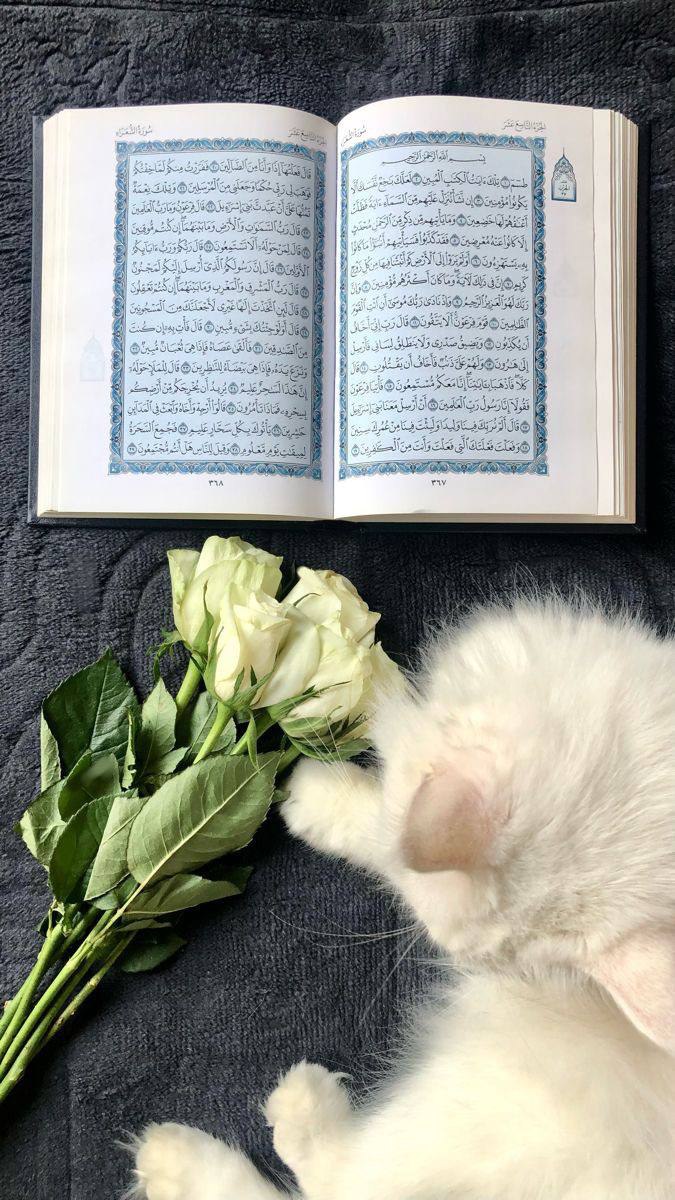 الجُزْءُ التَّاسِعَ عَشَرَ
بِسْمِ ٱللَّهِ ٱلرَّحْمَٰنِ ٱلرَّحِيمِ
طسٓمٓ ١ تِلْكَ ءَايَٰتُ ٱلْكِتَٰبِ ٱلْمُبِينِ ٢ لَعَلَّكَ بَٰخِعٌ نَّفْسَكَ أَلَّا
يَكُونُوا۟ مُؤْمِنِينَ ٣ إِن نَّشَأْ نُنَزِّلْ عَلَيْهِم مِّنَ ٱلسَّمَآءِ ءَايَةً فَظَلَّتْ
أَعْنَٰقُهُمْ لَهَا خَٰضِعِينَ ٤ وَمَا يَأْتِيهِم مِّن ذِكْرٍ مِّنَ ٱلرَّحْمَٰنِ مُحْدَثٍ
إِلَّا كَانُوا۟ عَنْهُ مُعْرِضِينَ ٥ فَقَدْ كَذَّبُوا۟ فَسَيَأْتِيهِمْ أَنۢبَٰٓؤُا۟ مَا كَانُوا۟
بِهِۦ يَسْتَهْزِءُونَ ٦ أَوَلَمْ يَرَوْا۟ إِلَى ٱلْأَرْضِ كَمْ أَنۢبَتْنَا فِيهَا مِن كُلِّ زَوْجٍ
كَرِيمٍ ٧ إِنَّ فِى ذَٰلِكَ لَءَايَةً وَمَا كَانَ أَكْثَرُهُم مُّؤْمِنِينَ ٨ وَإِنَّ
رَبَّكَ لَهُوَ ٱلْعَزِيزُ ٱلرَّحِيمُ ٩ وَإِذْ نَادَىٰ رَبُّكَ مُوسَىٰٓ أَنِ ٱئْتِ ٱلْقَوْمَ
ٱلظَّٰلِمِينَ ١٠ قَوْمَ فِرْعَوْنَ أَلَا يَتَّقُونَ ١١ قَالَ رَبِّ إِنِّىٓ أَخَافُ
أَن يُكَذِّبُونِ ١٢ وَيَضِيقُ صَدْرِى وَلَا يَنطَلِقُ لِسَانِى فَأَرْسِلْ
إِلَىٰ هَٰرُونَ ١٣ وَلَهُمْ عَلَىَّ ذَنۢبٌ فَأَخَافُ أَن يَقْتُلُونِ ١٤ قَالَ
كَلَّا فَٱذْهَبَا بِـَٔايَٰتِنَآ إِنَّا مَعَكُم مُّسْتَمِعُونَ ١٥ فَأْتِيَا فِرْعَوْنَ
فَقُولَآ إِنَّا رَسُولُ رَبِّ ٱلْعَٰلَمِينَ ١٦ أَنْ أَرْسِلْ مَعَنَا بَنِىٓ إِسْرَٰٓءِيلَ ١٧
قَالَ أَلَمْ نُرَبِّكَ فِينَا وَلِيدًا وَلَبِثْتَ فِينَا مِنْ عُمُرِكَ سِنِينَ ١٨
وَفَعَلْتَ فَعْلَتَكَ ٱلَّتِى فَعَلْتَ وَأَنتَ مِنَ ٱلْكَٰفِرِينَ ١٩
٣٦٧
الجُزْءُ التَّاسِعَ عَشَرَ
سُورَةُ الشُّعَرَاء
قَالَ فَعَلْتُهَآ إِذًا وَأَنَا۠ مِنَ ٱلضَّآلِّينَ ٢٠ فَفَرَرْتُ مِنكُمْ لَمَّا خِفْتُكُمْ
فَوَهَبَ لِى رَبِّى حُكْمًا وَجَعَلَنِى مِنَ ٱلْمُرْسَلِينَ ٢١ وَتِلْكَ نِعْمَةٌ
تَمُنُّهَا عَلَىَّ أَنْ عَبَّدتَّ بَنِىٓ إِسْرَٰٓءِيلَ ٢٢ قَالَ فِرْعَوْنُ وَمَا رَبُّ ٱلْعَٰلَمِينَ
٢٣ قَالَ رَبُّ ٱلسَّمَٰوَٰتِ وَٱلْأَرْضِ وَمَا بَيْنَهُمَآ إِن كُنتُم مُّوقِنِينَ
٢٤ قَالَ لِمَنْ حَوْلَهُۥٓ أَلَا تَسْتَمِعُونَ ٢٥ قَالَ رَبُّكُمْ وَرَبُّ ءَابَآئِكُمُ
ٱلْأَوَّلِينَ ٢٦ قَالَ إِنَّ رَسُولَكُمُ ٱلَّذِىٓ أُرْسِلَ إِلَيْكُمْ لَمَجْنُونٌ
٢٧ قَالَ رَبُّ ٱلْمَشْرِقِ وَٱلْمَغْرِبِ وَمَا بَيْنَهُمَآ إِن كُنتُمْ تَعْقِلُونَ
٢٨ قَالَ لَئِنِ ٱتَّخَذْتَ إِلَٰهًا غَيْرِى لَأَجْعَلَنَّكَ مِنَ ٱلْمَسْجُونِينَ
٢٩ قَالَ أَوَلَوْ جِئْتُكَ بِشَىْءٍ مُّبِينٍ ٣٠ قَالَ فَأْتِ بِهِۦٓ إِن كُنتَ
مِنَ ٱلصَّٰدِقِينَ ٣١ فَأَلْقَىٰ عَصَاهُ فَإِذَا هِىَ ثُعْبَانٌ مُّبِينٌ ٣٢
وَنَزَعَ يَدَهُۥ فَإِذَا هِىَ بَيْضَآءُ لِلنَّٰظِرِينَ ٣٣ قَالَ لِلْمَلَإِ حَوْلَهُۥٓ
إِنَّ هَٰذَا لَسَٰحِرٌ عَلِيمٌ ٣٤ يُرِيدُ أَن يُخْرِجَكُم مِّنْ أَرْضِكُم
بِسِحْرِهِۦ فَمَاذَا تَأْمُرُونَ ٣٥ قَالُوٓا۟ أَرْجِهْ وَأَخَاهُ وَٱبْعَثْ فِى ٱلْمَدَآئِنِ
حَٰشِرِينَ ٣٦ يَأْتُوكَ بِكُلِّ سَحَّارٍ عَلِيمٍ ٣٧ فَجُمِعَ ٱلسَّحَرَةُ
لِمِيقَٰتِ يَوْمٍ مَّعْلُومٍ ٣٨ وَقِيلَ لِلنَّاسِ هَلْ أَنتُم مُّجْتَمِعُونَ ٣٩
٣٦٨